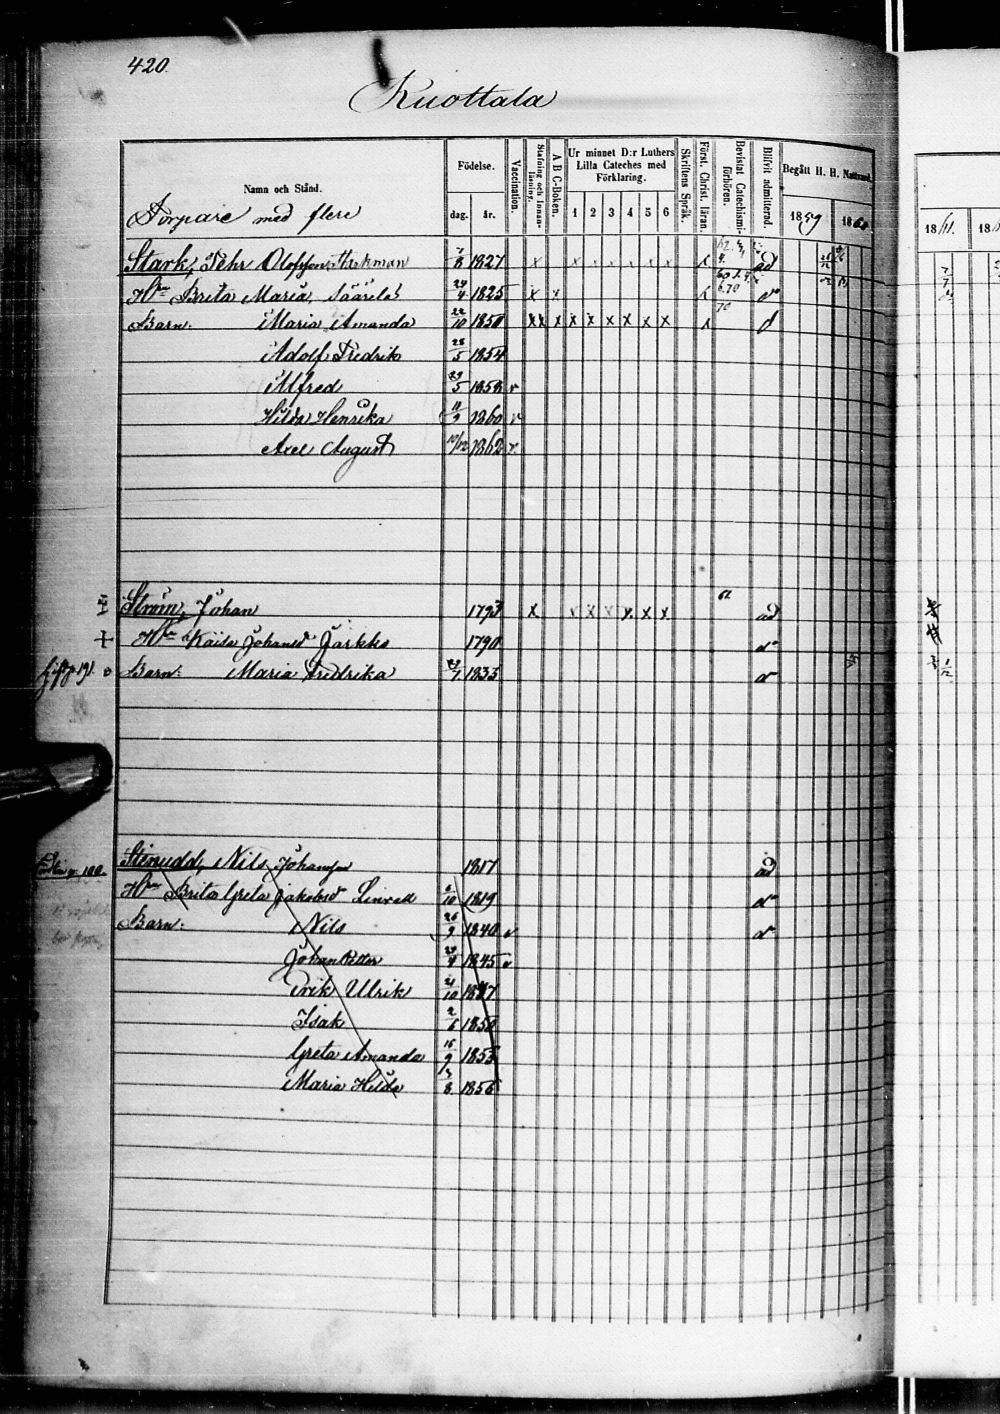 420
Kuottala
Namn och Stånd.
Födelse.
dag. år.
Vaccination.
Stafning och Innanläsning.
A B C-Boken.
Ur minnet D:r Luthers Lilla Cateches med Förklaring.
1 2 3 4 5 6
Skriftens Språk.
Först. Christ. läran.
Bevistat Catechismiförhören.
Blifvit admitterad.
Begått H. H. Nattvard.
1859 1860
1861
Torpare med flere
Stark, Pehr Olofsson 7/8 1827 x x x x x x x x ad
H:n Brita Maria 24/4 1825 x x
Barn: Maria Amanda 22/10 1850 xx x x x x x x x x
Adolf Fredrik 28/5 1854
Alfred 29/5 1858 v
Hilda Henrika 11/9 1860 v
Axel August 10/12 1862 v
Ström, Johan 1793 x x x x x x x ad
H:n Kaisa Johansd 1790
Barn: Maria Fredrika 1835
Stenudd, Nils Johansson 1817 ad
H:n Brita Greta Jakobsd 1819
Barn: Nils 26/9 1840 v
Johan Petter 1845 v
Erik Ulrik 21/10 1847
Isak 2/6 1850
Greta Amanda 15/9 1853
Maria Hilda 3/8 1856